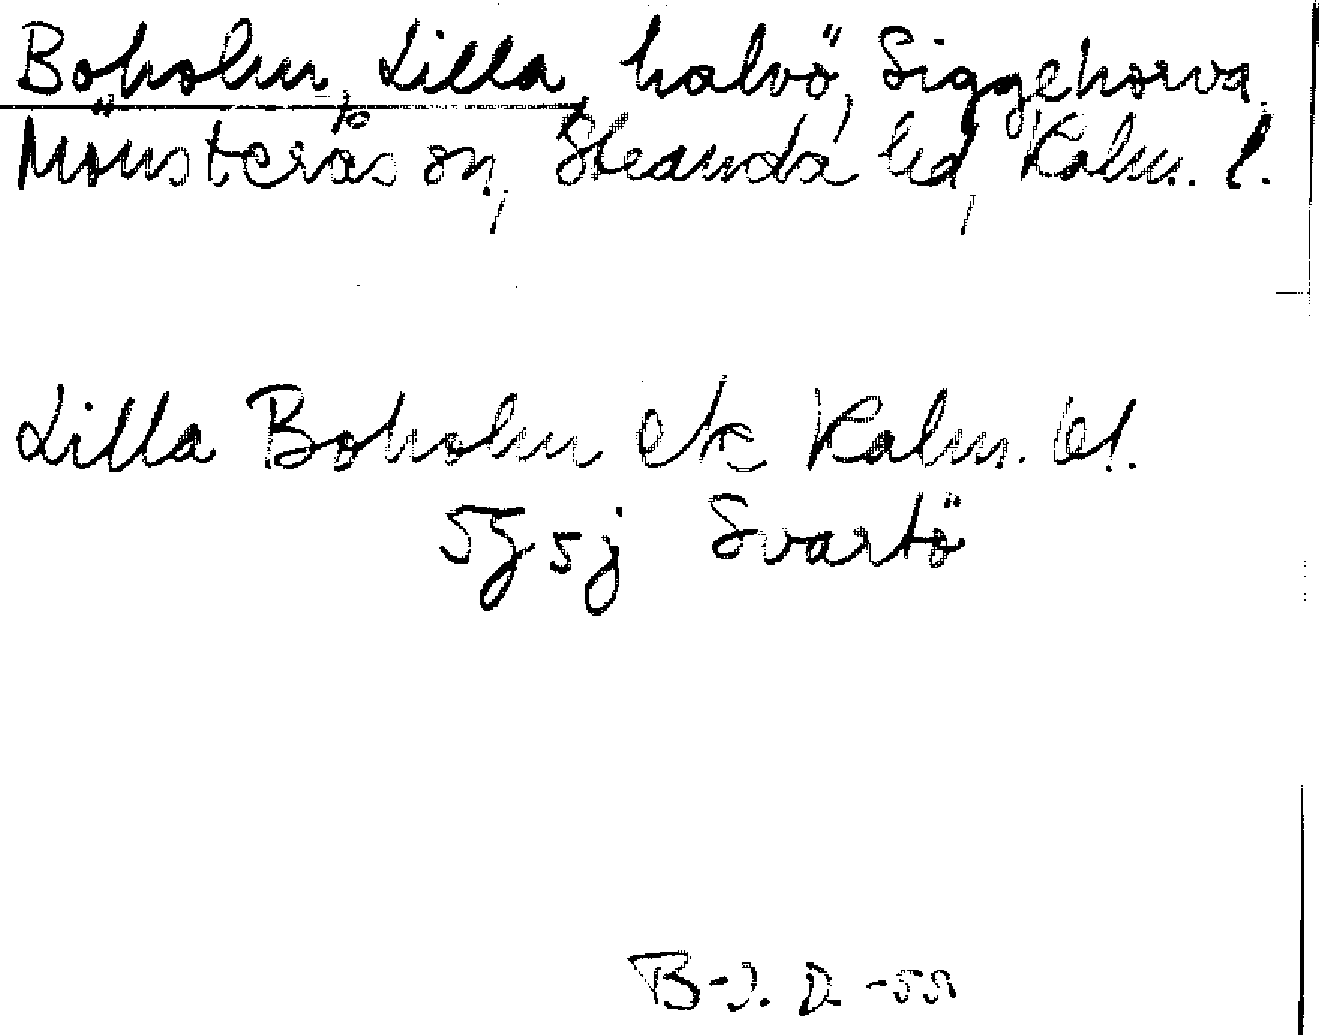 Boholm, Lilla, halvö, Siggehorva,
Mönsterås sn, Stranda hd, Kalm. l.
Lilla Boholm ek Kalm. bl.
5g5j Svartö
B-J. D. -55